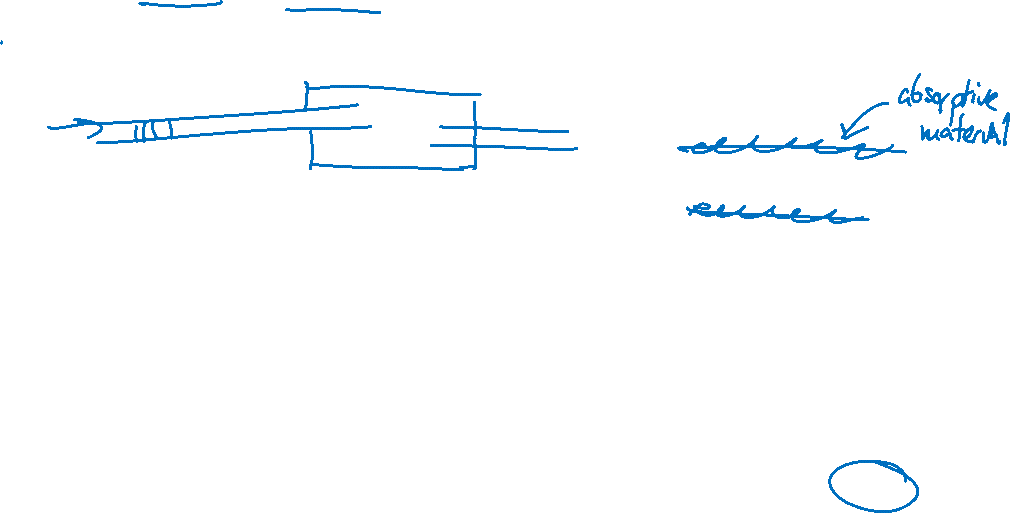 absorptive
material